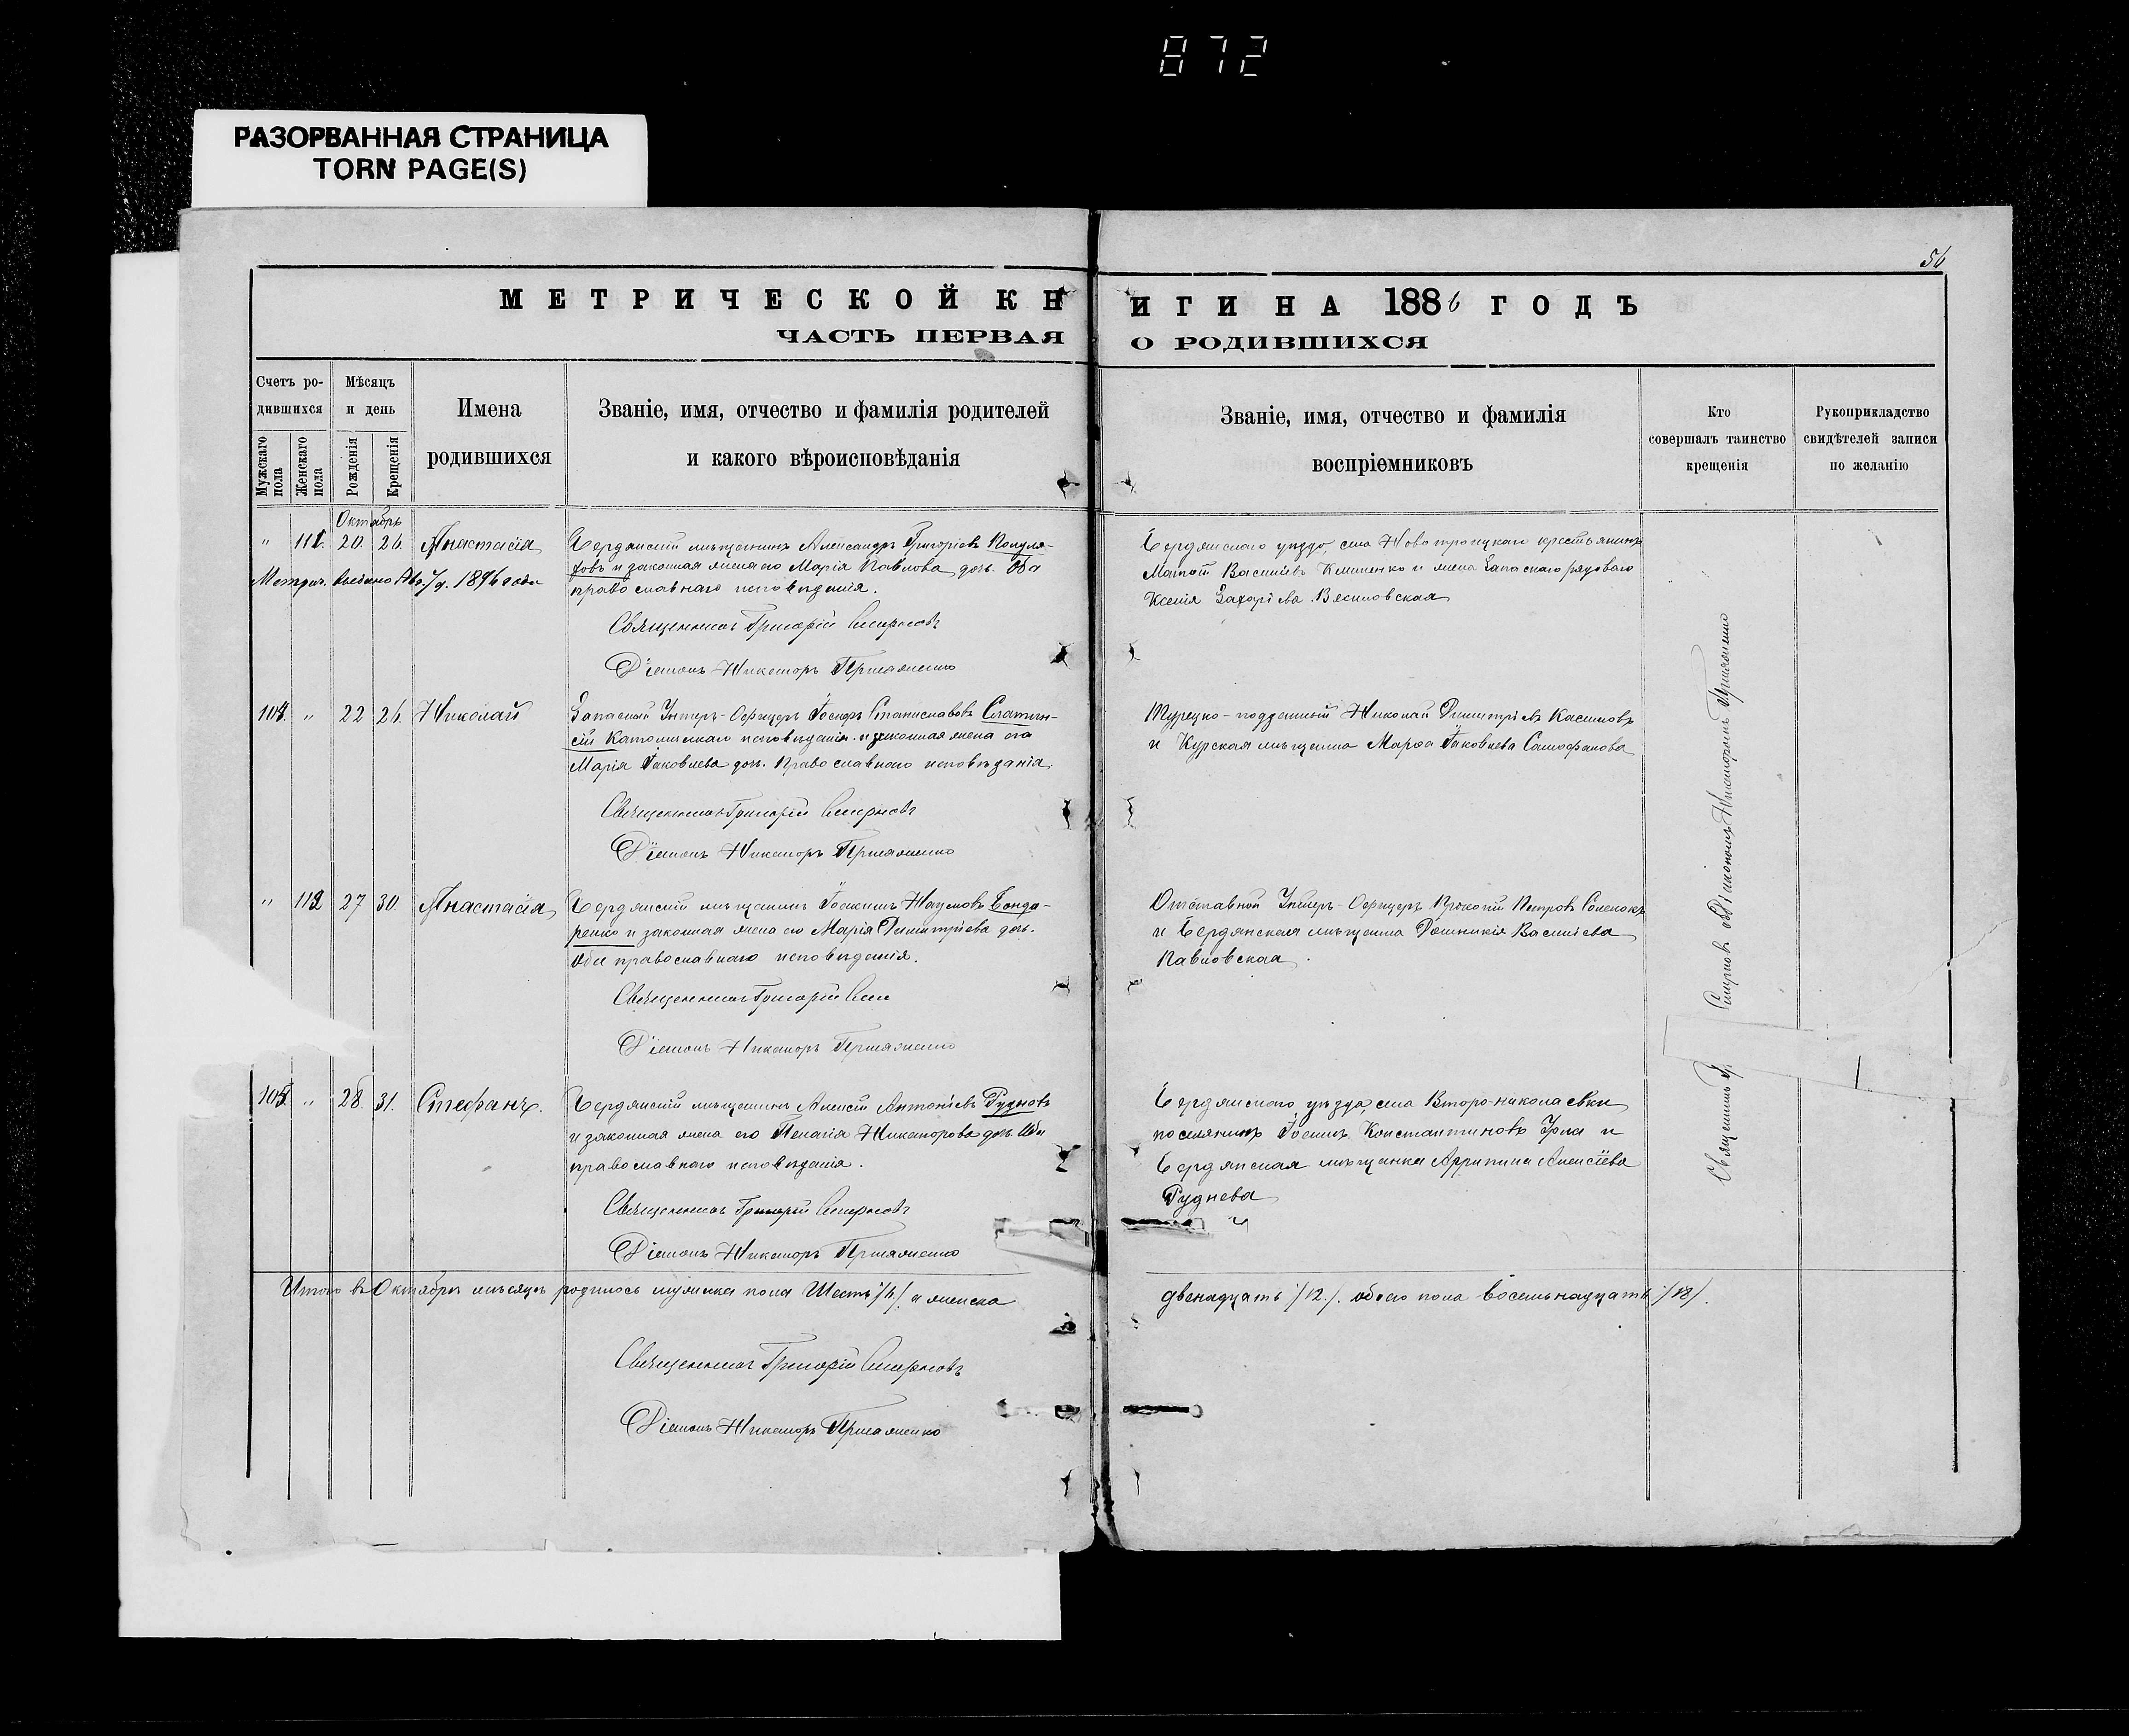 872
РАЗОРВАННАЯ СТРАНИЦА
TORN PAGE(S)
56
МЕТРИЧЕСКОЙ КНИГИ НА 1886 ГОДЪ
ЧАСТЬ ПЕРВАЯ О РОДИВШИХСЯ
Счетъ ро-
дившихся
Мужскаго пола
Женскаго пола
Мѣсяцъ
и день
Рожденія
Крещенія
Имена
родившихся
Званіе, имя, отчество и фамилія родителей
и какого вѣроисповѣданія
Званіе, имя, отчество и фамилія
воспріемниковъ
Кто
совершалъ таинство
крещенія
Рукоприкладство
свидѣтелей записи
по желанію
Октябрь
" 111. 20. 26. Анастасія
Бердянскій мѣщанинъ Александръ Григоріевъ
и законная жена его Марія Павлова дочь. Оба
православнаго исповѣданія.
Священникъ Григорій Смирновъ
Діаконъ Никаноръ
Метрич. 1896 года
Бердянскаго уѣзда, села Новотроицкаго крестьянинъ
Василіевъ Клименко и жена запаснаго рядоваго
Ксенія Захаріева
104. " 22 26. Николай
Запасный Унтеръ-Офицеръ Іосифъ Станиславовъ
Католическаго исповѣданія и законная жена его
Марія Іаковлева доч. Православнаго исповѣданія.
Священникъ Григорій Смирновъ
Діаконъ Никаноръ
Турецко-подданный Николай Димитріевъ Касимовъ
и Курская мѣщанка Марѳа Іаковлева
" 112 27 30. Анастасія
Бердянскій мѣщанинъ Іоакимъ Наумовъ Бонда-
ренко и законная жена его Марія Димитріева доч.
Оба православнаго исповѣданія.
Священникъ Григорій
Діаконъ Никаноръ
Отставной Унтеръ-Офицеръ Прокопій Петровъ
и Бердянская мѣщанка Домникія Василіева
Павловская.
105. " 28. 31. Стефанъ.
Бердянскій мѣщанинъ Алексій Антоніевъ Рудневъ
и законная жена его Пелагія Никанорова доч. Оба
православнаго исповѣданія.
Священникъ Григорій Смирновъ
Діаконъ Никаноръ
Бердянскаго уѣзда, села Второ-николаевки
поселянинъ Константиновъ и
Бердянская мѣщанка Агрипина Алексіева
Руднева
Священникъ Г. Смирновъ съ Діакономъ Никаноромъ
Итого въ Октябрѣ мѣсяцѣ родилось мужска пола Шесть /6/. и женска двенадцать /12./. обоего пола восемьнадцать /18/.
Священникъ Григорій Смирновъ
Діаконъ Никаноръ